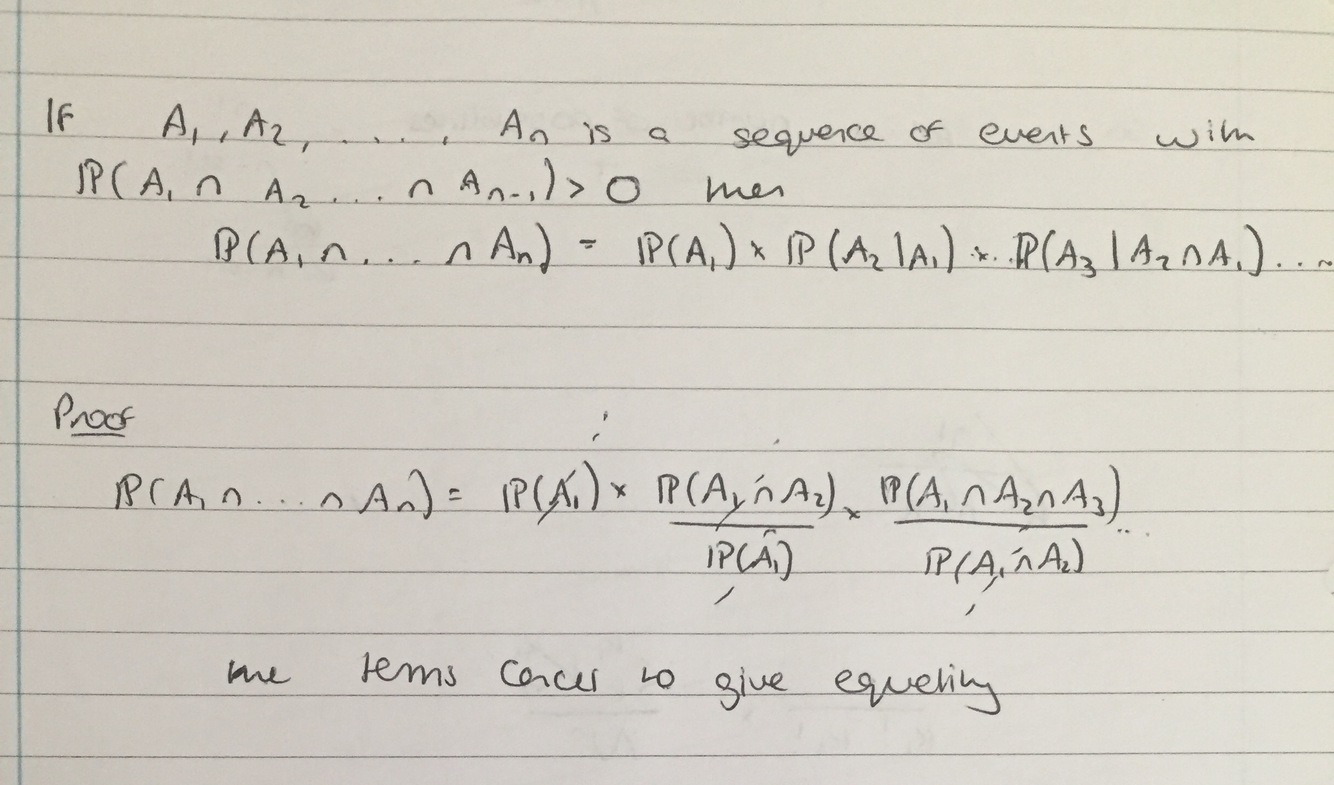 If A₁, A₂, ...., Aₙ is a sequence of events with
ℙ(A₁ ∩ A₂ ... ∩ Aₙ₋₁) > 0 then
ℙ(A₁ ∩ ... ∩ Aₙ) = ℙ(A₁) × ℙ(A₂ | A₁) × ℙ(A₃ | A₂ ∩ A₁) ...
Proof
ℙ(A₁ ∩ ... ∩ Aₙ) = ℙ(A₁) × ℙ(A₁ ∩ A₂) × ℙ(A₁ ∩ A₂ ∩ A₃) ..
ℙ(A₁) ℙ(A₁ ∩ A₂)
the terms cancel to give equality